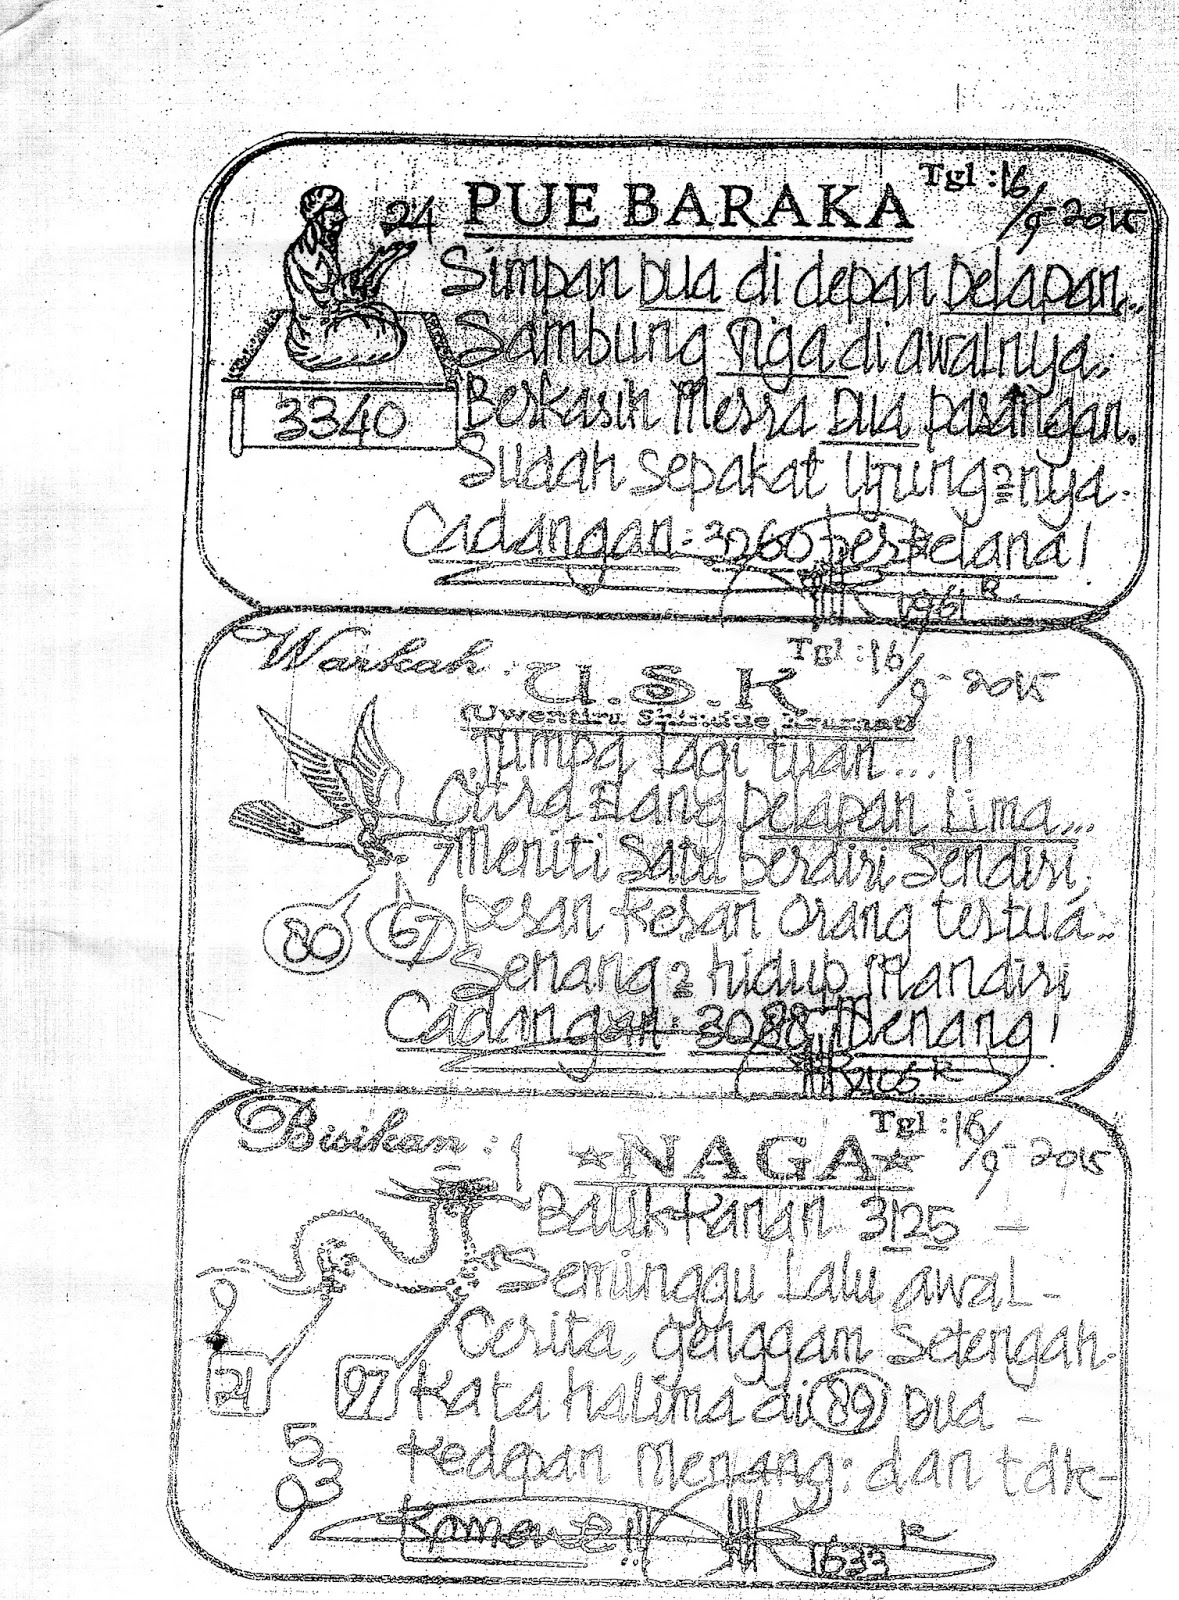 PUE BARAKA
Tgl : 16/9-2015
24
Simpan Dua di depan Delapan..
Sambung Tiga di awalnya.
3340
Berkasih Mesra Dua pasangan.
Sudah Sepakat Ujung2nya.
Cadangan : 3260 berkelana!
1961 R
Warkah : U.S.K
Tgl : 16/9-2015
(Uwentiru Shindue Kramat)
Jumpa lagi tuan...!!
Citra Elang Delapan Lima...
7 Meniti Satu berdiri Sendiri,
80 67
pesan Kesan Orang tertua..
Senang2 hidup Mandiri
Cadangan : 3088 Menang!
2105 R
Bisikan : 1 NAGA
Tgl : 16/9-2015
Balik Kanan 3125 -
Seminggu Lalu awal-
9
Cerita, genggam Setengah-
21 97
Kata halima di 89 Dua -
5
Kedepan Menang; dan tdk-
93
9
1633 R